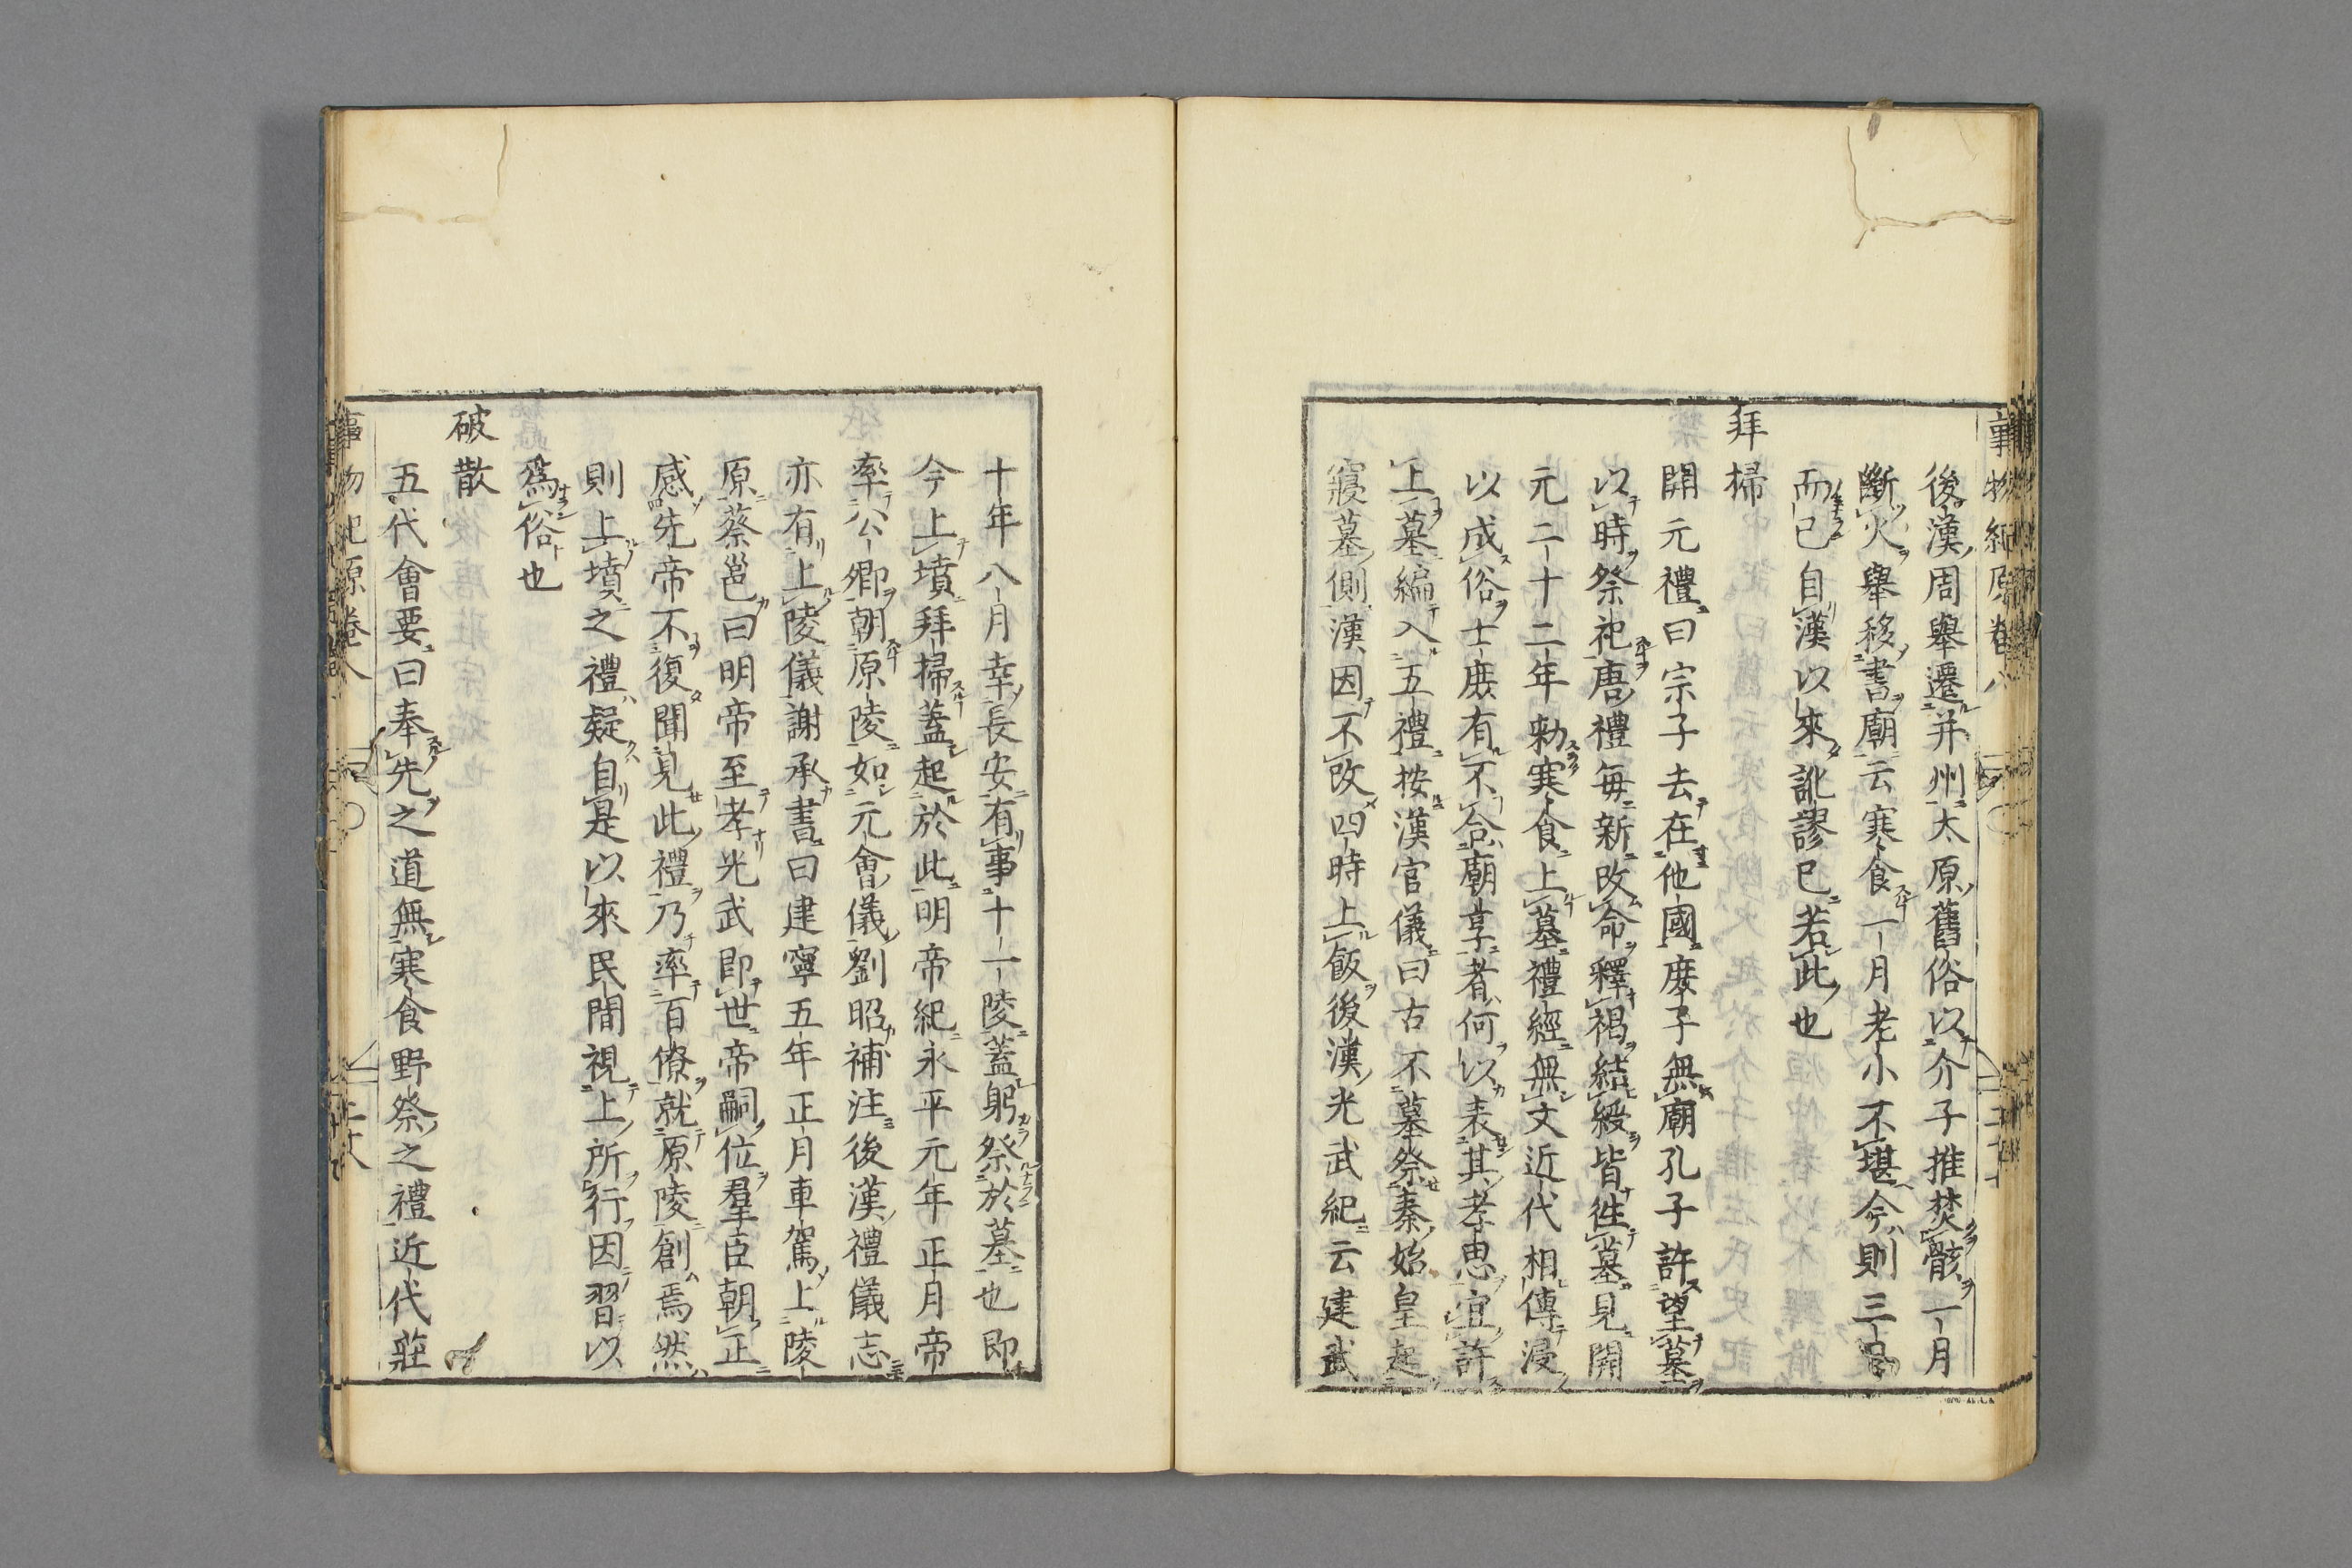 後漢周舉遷并州太原舊俗以介子推焚骸一月
斷火舉移書廟云寒食一月老小不堪今則三日
而已自漢以來訛謬已若此也
拜掃
開元禮曰宗子去在他國庶子無廟孔子許望墓
以時祭祀唐禮毎新改命釋褐結綬皆徃墓見開
元二十二年勑寒食上墓禮經無文近代相傳浸
以成俗士庶有不合廟享者何以表其孝思宜許
上墓編入五禮按漢官儀曰古不墓祭秦始皇起
寢墓側漢因不改四時上飯後漢光武紀云建武
十年八月幸長安有事十一陵蓋躬祭於墓也即
今上墳拜掃蓋起於此明帝紀永平元年正月帝
率公卿朝原陵如元會儀劉昭補注後漢禮儀志
亦有上陵儀謝承書曰建寧五年正月車駕上陵
原蔡邕曰明帝至孝光武即世帝嗣位羣臣朝正
感先帝不復聞見此禮乃率百僚就原陵創焉然
則上墳之禮疑自是以來民間視上所行因習以
爲俗也
破散
五代會要曰奉先之道無寒食野祭之禮近代莊
事物紀原卷八